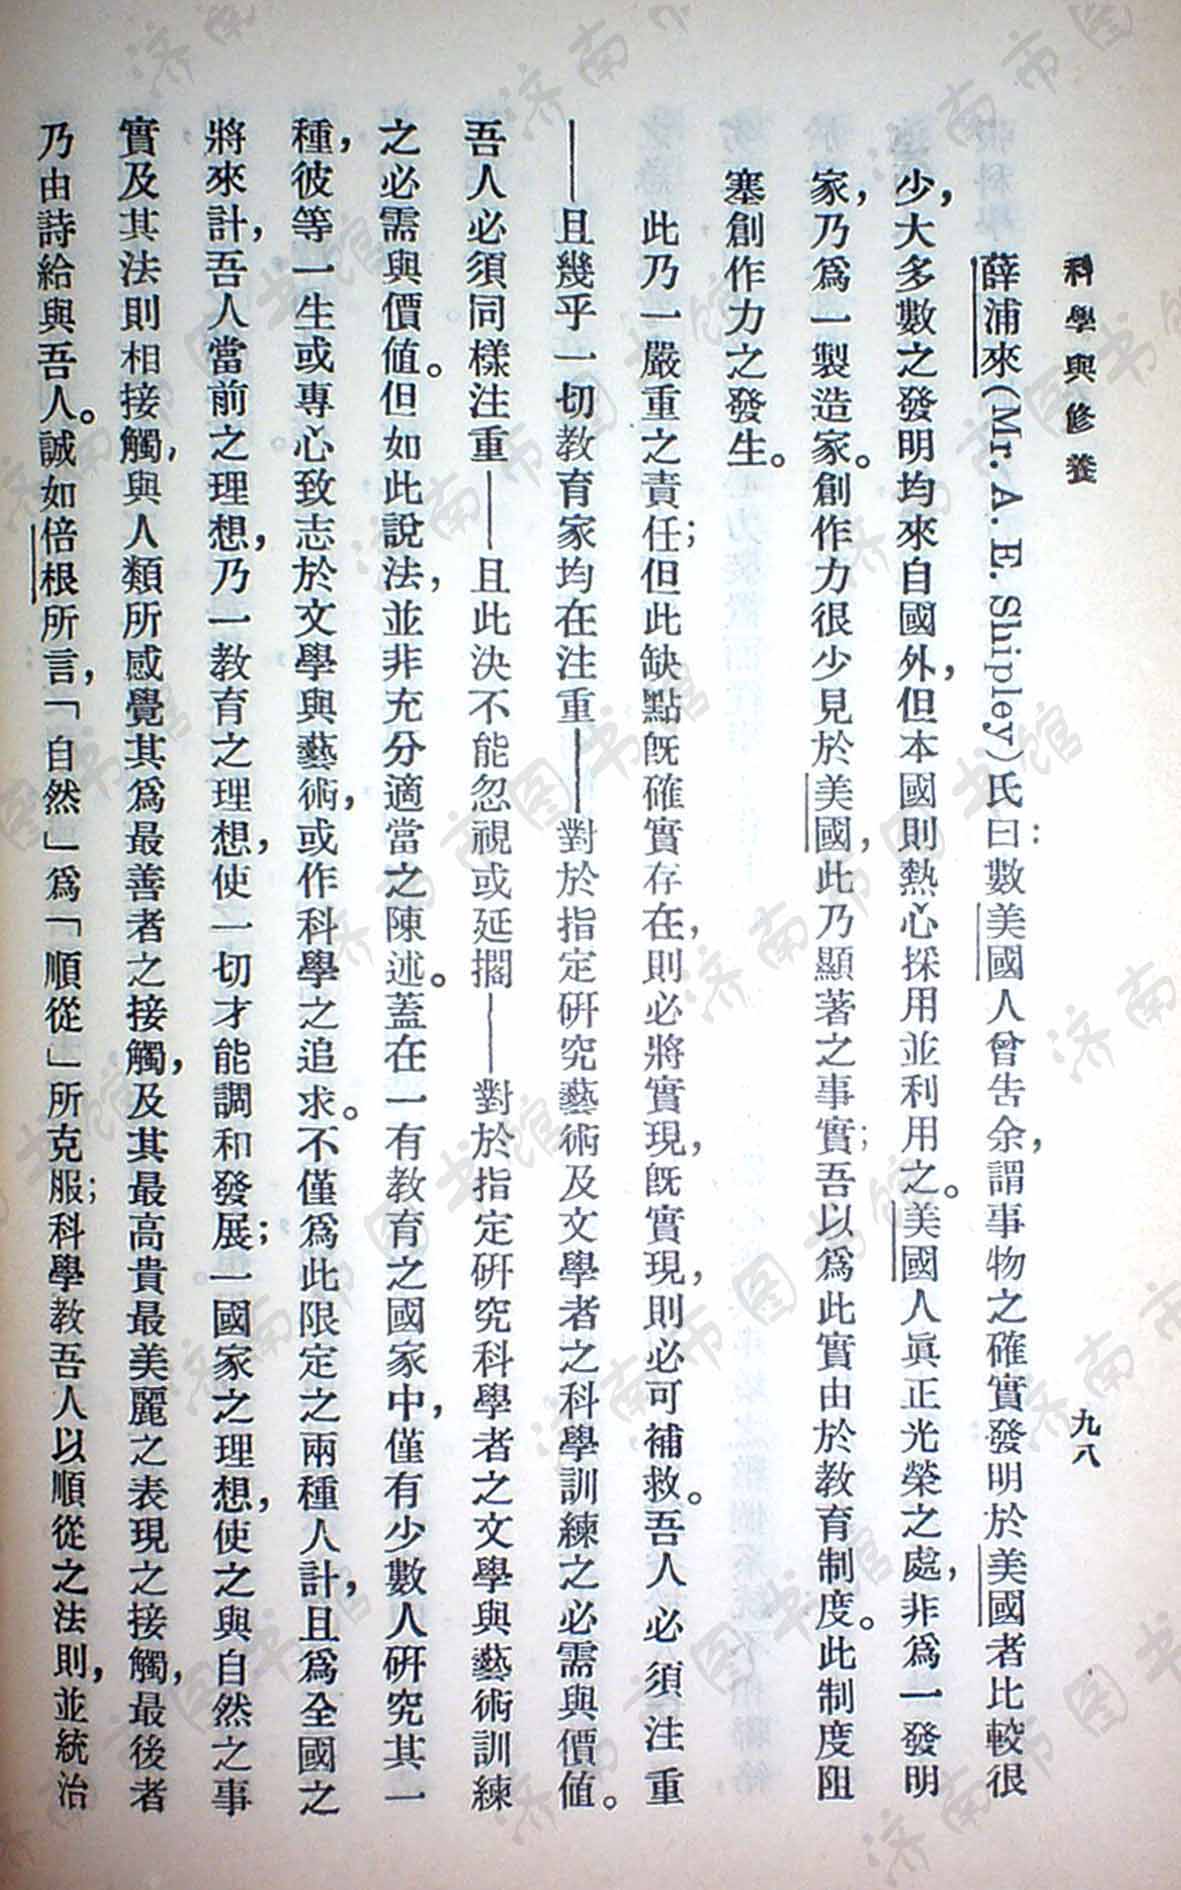 科學與修養
九八
薛浦來(Mr. A. E. Shipley)氏曰:數美國人曾告余,謂事物之確實發明於美國者比較很
少,大多數之發明均來自國外,但本國則熱心採用並利用之。美國人眞正光榮之處,非爲一發明
家,乃爲一製造家。創作力很少見於美國,此乃顯著之事實;吾以爲此實由於教育制度。此制度阻
塞創作力之發生。
此乃一嚴重之責任;但此缺點旣確實存在,則必將實現,旣實現,則必可補救。吾人必須注重
——且幾乎一切教育家均在注重——對於指定研究藝術及文學者之科學訓練之必需與價值。
吾人必須同樣注重——且此決不能忽視或延擱——對於指定研究科學者之文學與藝術訓練
之必需與價值。但如此說法,並非充分適當之陳述。蓋在一有教育之國家中,僅有少數人研究其一
種,彼等一生或專心致志於文學與藝術,或作科學之追求。不僅爲此限定之兩種人計,且爲全國之
將來計,吾人當前之理想,乃一教育之理想,使一切才能調和發展;一國家之理想,使之與自然之事
實及其法則相接觸,與人類所感覺其爲最善者之接觸,及其最高貴最美麗之表現之接觸,最後者
乃由詩給與吾人。誠如倍根所言,「自然」爲「順從」所克服;科學教吾人以順從之法則,並統治
济南市图书馆